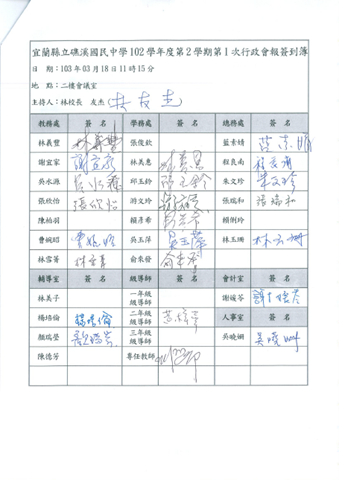 宜蘭縣立礁溪國民中學102學年度第2學期第1次行政會報簽到簿
日　期：103年03月18日11時15分
地　點：二樓會議室
主持人：林校長　友杰　林友杰
教務處　簽　名　學務處　簽　名　總務處　簽　名
林義豐　張俊欽　藍素婧
謝宜家　謝宜家　林美惠　林美惠　程良南　程良南
吳水源　邱玉鈴　邱玉鈴　朱文珍　朱文珍
張欣怡　張欣怡　游文玲　張瑞和　張瑞和
陳柏羽　賴彥希　賴俐玲
曹婉昭　曹婉昭　吳玉萍　吳玉萍　林玉珊　林玉珊
林雪菁　俞來發
輔導室　簽　名　級導師　簽　名　會計室　簽　名
林美子　一年級級導師　謝媛芩
楊培倫　楊培倫　二年級級導師　人事室　簽　名
顏瑞瑩　三年級級導師　吳曉娟　吳曉娟
陳德芳　專任教師